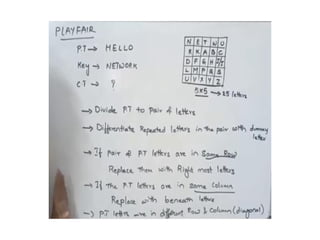 PLAYFAIR
P.T → HELLO
Key → NETWORK
C.T → ?
N E T W O
R K A B C
D F G H I/J
L M P Q S
U V X Y Z
5x5 → 25 letters
→ Divide P.T to Pair of letters
→ Differentiate Repeated letters in the pair with dummy
letter
→ If Pair of P.T letters are in Same Row
Replace them with Right most letters
→ If the P.T letters are in same Column
Replace with beneath letter
→ P.T letters are in different Row & Column (diagonal)